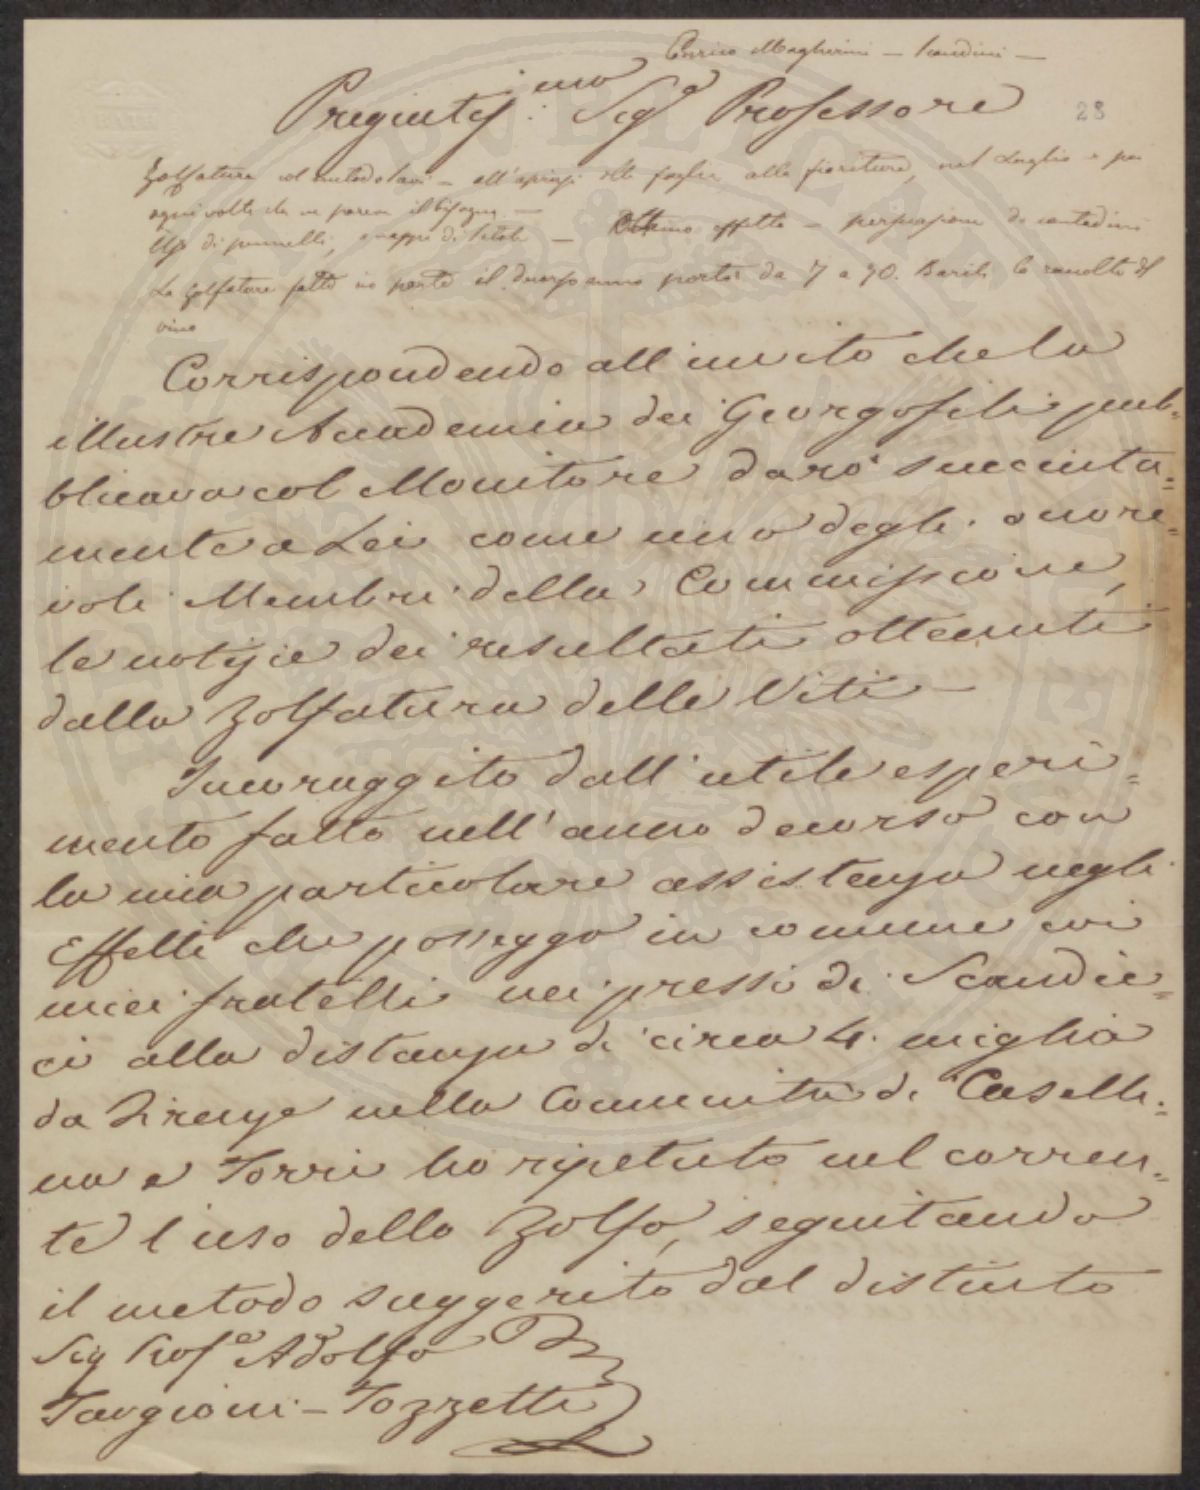 Enrico Magherini — Scandicci —
Pregiatis.mo Sig.e Professore
23
Zolfatura col metodo — all'aprirsi delle foglie alla fioritura, nel Luglio e poi
ogni volta che ne pareva il bisogno. —
Uso di pennelli, e mazzi di setole — Ottimo effetto — persuasione de contadini
La zolfatura fatta in parte il decorso anno portò da 7 a 90. Barili la raccolta del
vino
Corrispondendo all'invito che la
illustre Accademia dei Georgofili pub-
blicava col Monitore darò succinta=
mente a Lei come uno degli onore=
voli Membri della Commissione,
le notizie dei resultati ottenuti
dalla Zolfatura delle Viti —
Incoraggito dall'utile esperi=
mento fatto nell'anno decorso con
la mia particolare assistenza negli
Effetti che posseggo in comune coi
miei fratelli nei pressi di Scandic=
ci alla distanza di circa 4. miglia
da Firenze nella Comunità di Caselli=
na e Torri ho ripetuto nel corren=
te l'uso dello Zolfo, seguitando
il metodo suggerito dal distinto
Sig Prof.e Adolfo
Targioni-Tozzetti